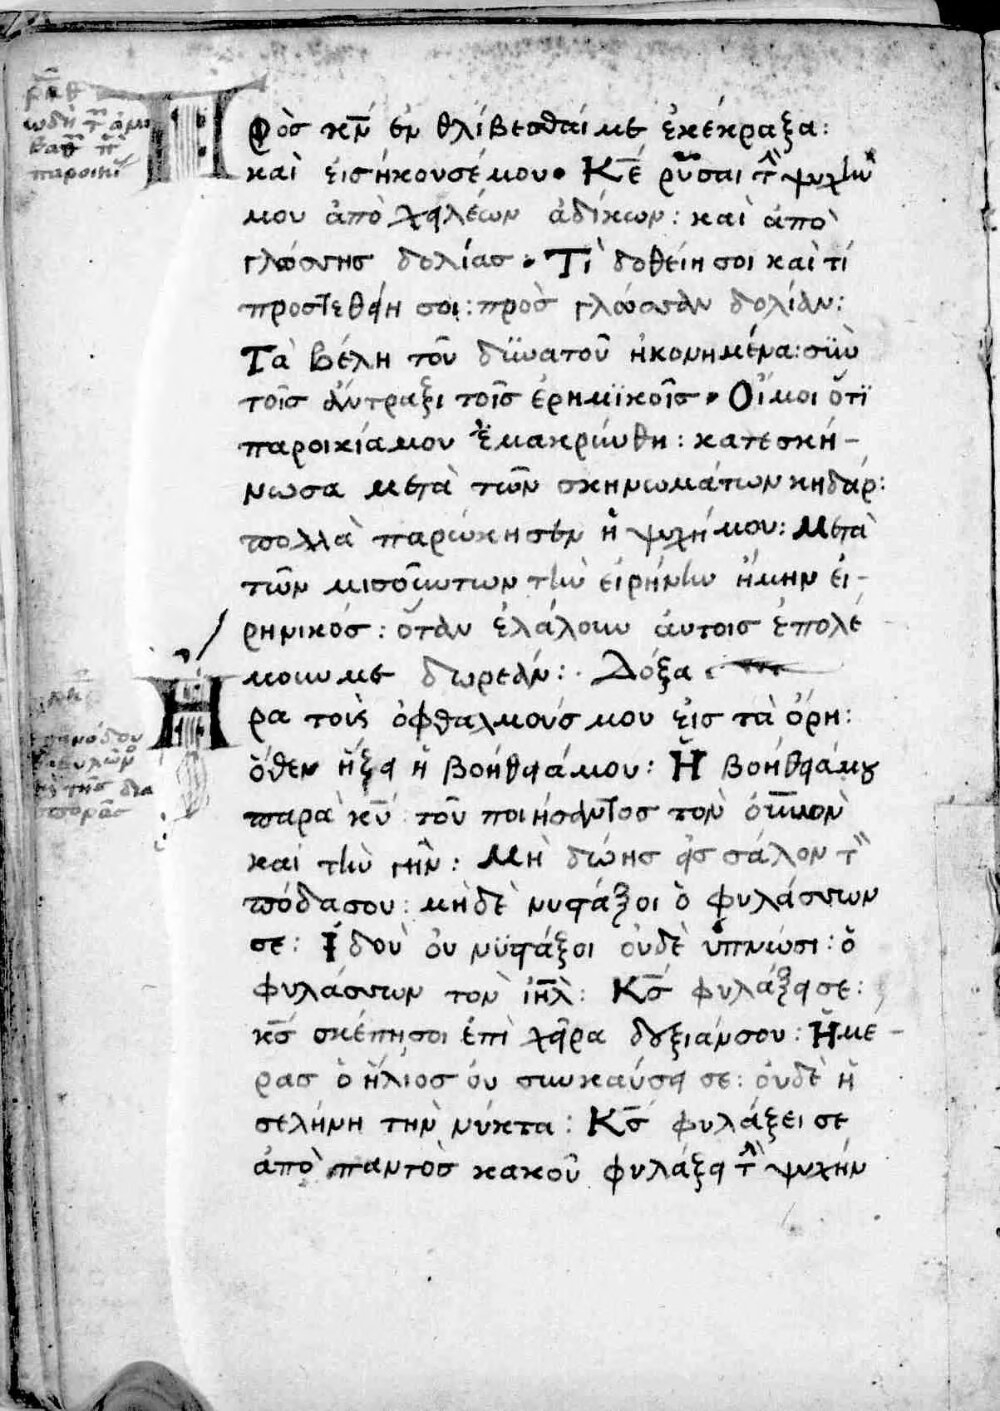 Πρὸς κ̅ν̅ ἐν θλίβεσθαί με ἐκέκραξα:
καὶ εἰσήκουσέ μου. Κ̅ε̅ ῥῦσαι τ̅ ψυχήν
μου ἀπὸ χειλέων ἀδίκων: καὶ ἀπὸ
γλώσσης δολίας. Τὶ δοθείη σοι καὶ τί
προστεθείη σοι: πρὸς γλώσσαν δολίαν:
Τὰ βέλη τοῦ δϋνατοῦ ἠκονημένα: σϋν
τοῖς ἄντραξι τοῖς ἐρημϊκοῖς. Οἴμοι ὅτϊ
παροικία μου ἐμακρύνθη: κατεσκή-
νωσα μετὰ τῶν σκηνωμάτων κηδάρ:
πολλὰ παρώκησεν ἡ ψυχή μου: Μετὰ
τῶν μισοῦντων τὴν εἰρήνην ἤμην εἰ-
ρηνικός: ὅταν ἐλάλουν αὐτοις ἐπολέ
μουν με δωρεάν: Δόξα
Ἦρα τοὺς ὀφθαλμούς μου εἰς τὰ ὄρη:
ὅθεν ἥξει ἡ βοήθειά μου: Ἡ βοήθειά μου
παρὰ κ̅υ̅ τοῦ ποιήσαντος τὸν οὐ̅νον
καὶ τὴν γῆν: Μὴ δώης εἰς σάλον τ̅
πόδα σου: μηδὲ νυστάξοι ὁ φυλάσσων
σε: Ἰδοὺ οὐ νϋστάξοι οὐδὲ ὑπνώσι: ὁ
φυλάσσων τὸν ι̅η̅λ̅: Κ̅ς̅ φυλάξει σε:
κ̅ς̅ σκέπη σοι ἐπὶ χεῖρα δεξιάν σου: Ἡμέ-
ρας ὁ ἥλιος οὐ συνκαύσει σε: οὐδὲ ἡ
σελήνη τὴν νύκτα: Κ̅ς̅ φυλάξει σε
ἀπὸ παντὸς κακοῦ φυλάξει τ̅ ψυχήν